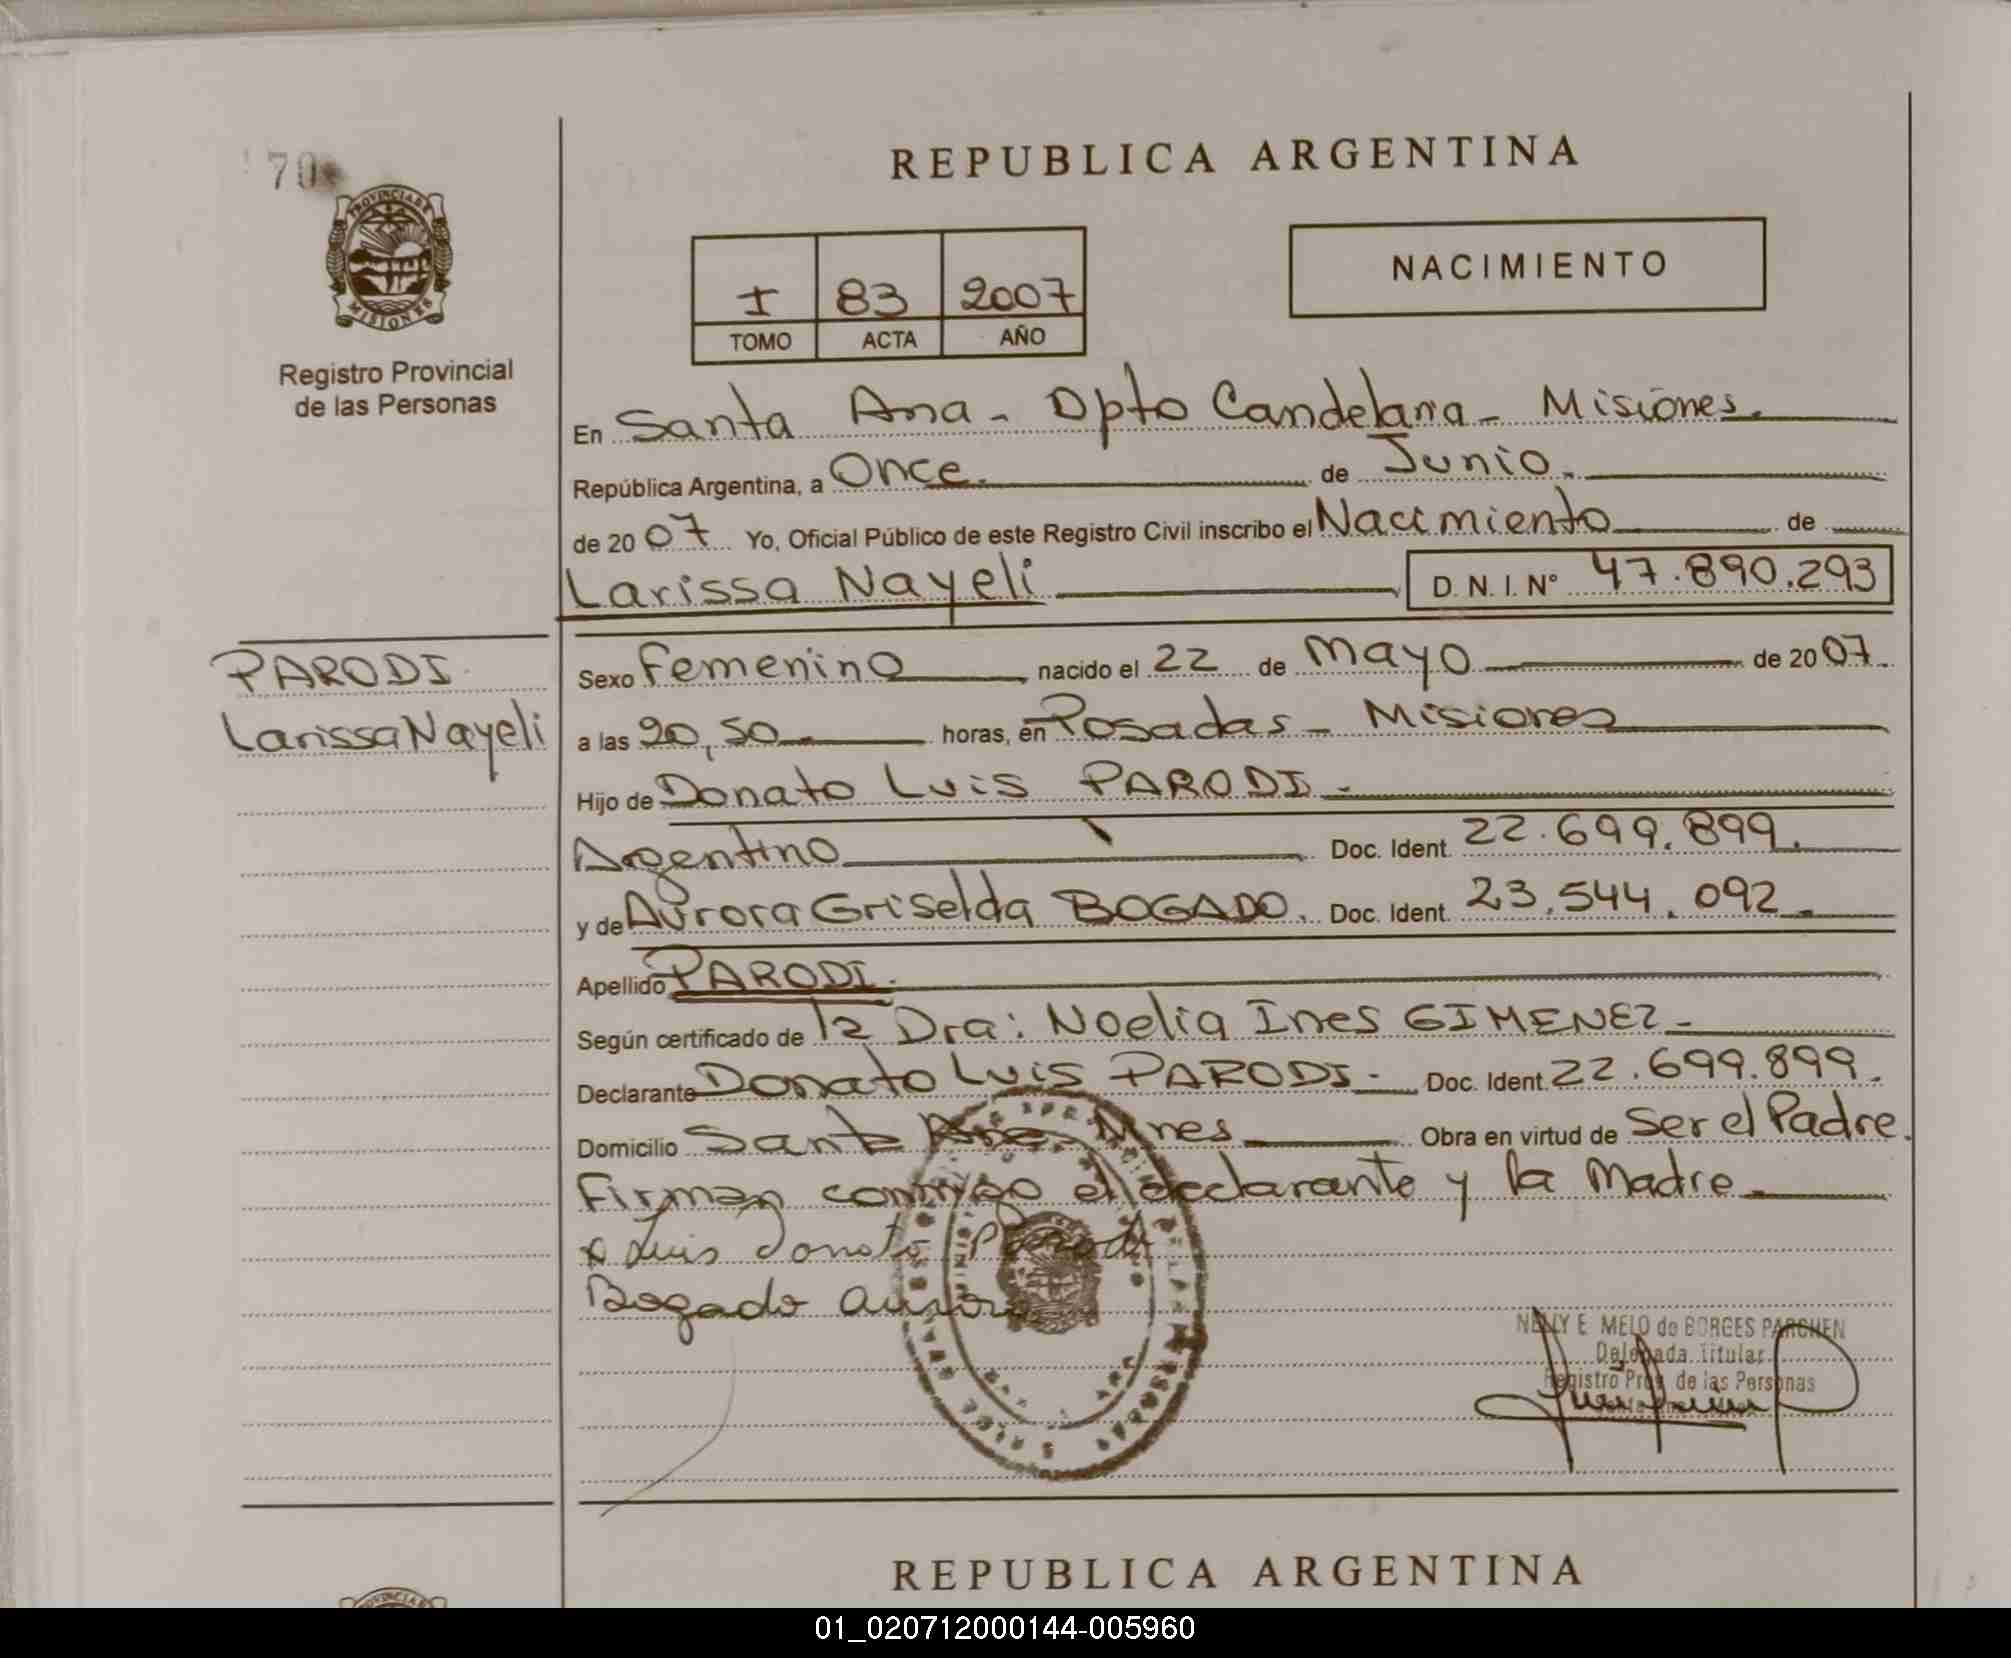 70
PROVINCIA DE
MISIONES
Registro Provincial
de las Personas
REPUBLICA ARGENTINA
I 83 2007
TOMO ACTA AÑO
NACIMIENTO
En Santa Ana - Dpto Candelaria - Misiones.
República Argentina, a Once. de Junio.
de 2007 Yo, Oficial Público de este Registro Civil inscribo el Nacimiento de
Larissa Nayeli D. N. I. N° 47.890.293
PARODI
Larissa Nayeli
Sexo Femenino nacido el 22 de Mayo de 2007.
a las 20,50 horas, en Posadas - Misiones
Hijo de Donato Luis PARODI -
Argentino Doc. Ident. 22.699.899.
y de Aurora Griselda BOGADO. Doc. Ident. 23.544.092.
Apellido PARODI.
Según certificado de la Dra: Noelia Ines GIMENEZ -
Declarante Donato Luis PARODI - Doc. Ident. 22.699.899.
Domicilio Santa Ana Mnes Obra en virtud de Ser el Padre.
Firman conmigo el declarante y la Madre.
Luis Donato Parodi
Bogado Aurora
NELLY E. MELO de BORGES PARCHEN
Delegada Titular
Registro Prov. de las Personas
REPUBLICA ARGENTINA
01_020712000144-005960